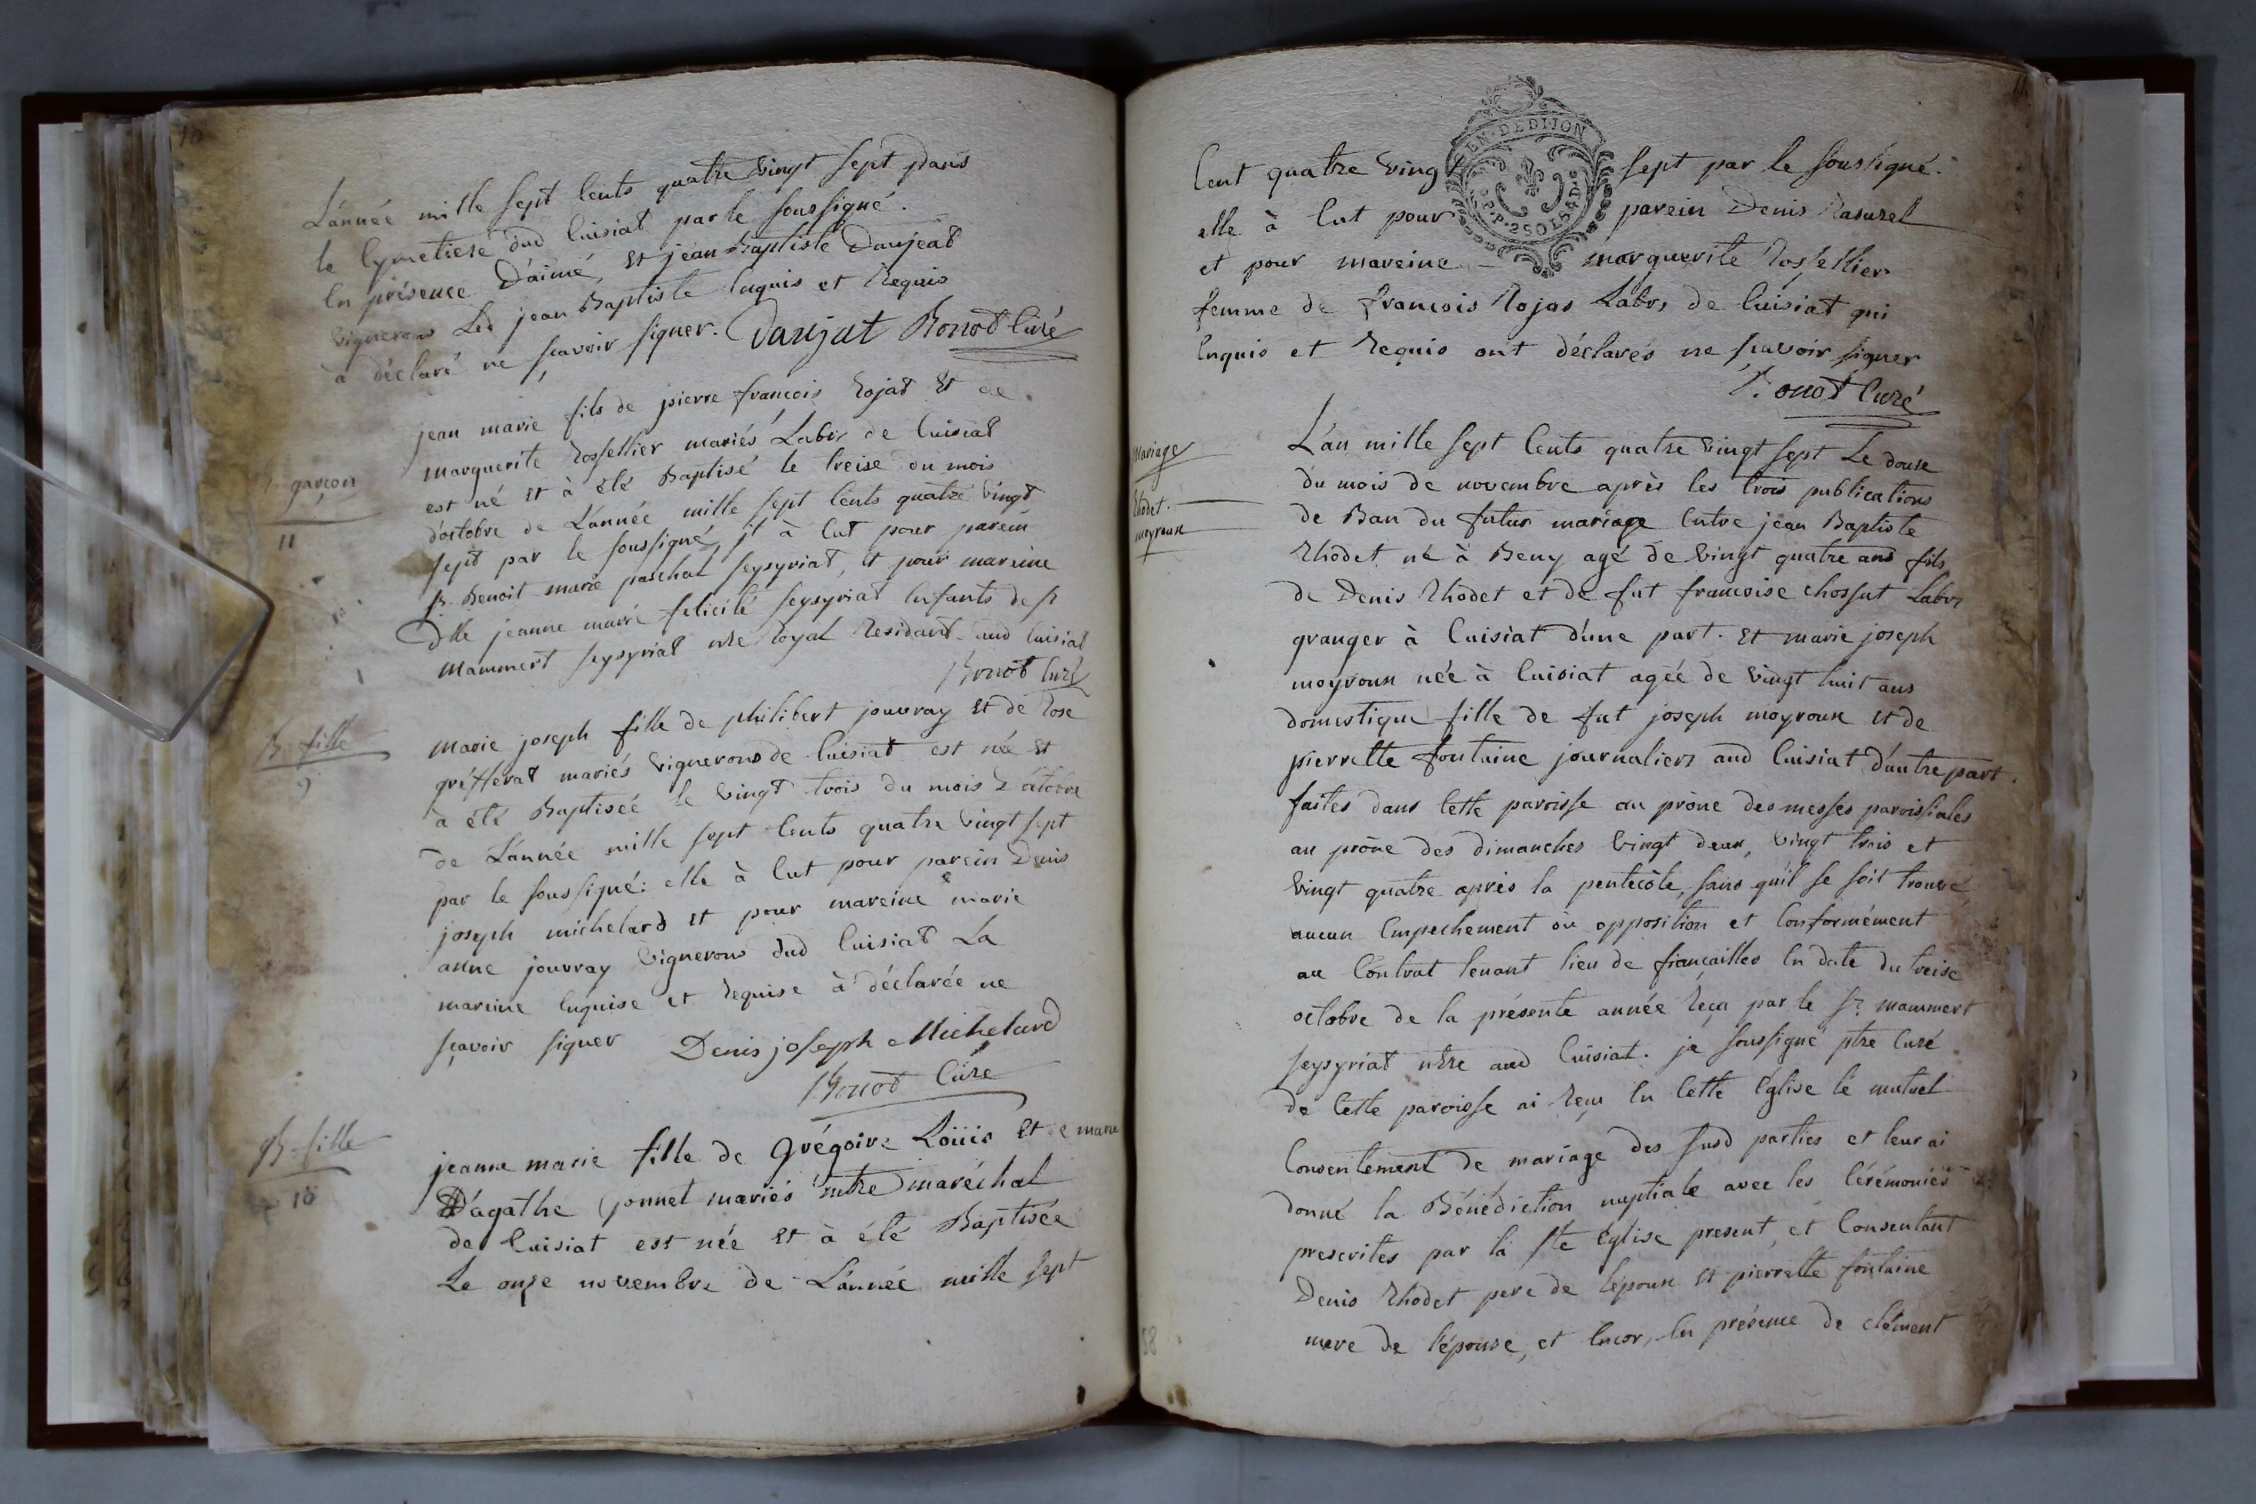 10
L'année mille sept cents quatre vingt sept dans
le Cymetiere dud Cuisiat par le soussigné.
En présence D'aimé, et jean Baptiste Daujeat
vignerons Led jean Baptiste Enquis et Requis
a déclaré ne sçavoir signer. Daujat Bonod Curé
garçon
11
jean marie fils de pierre françois Rojat et de
marguerite Rossellier mariés Labrs de Cuisiat
est né et à été Baptisé le treise du mois
d'octobre de L'année mille sept cents quatre vingt
sept par le soussigné, il à Eut pour parein
sr. Benoit marie paschal seysyriat, et pour mareine
Dlle jeanne marie felicité seysyriat Enfants de sr
mammert seysyriat nre Royal Residant aud Cuisiat
Bonod Curé
B. fille
9
marie joseph fille de philibert jouvray et de Rose
gréfferat mariés vignerons de Cuisiat est née et
a été Baptisée le vingt trois du mois d'octobre
de L'année mille sept cents quatre vingt sept
par le soussigné: elle à Eut pour parein Denis
joseph michelard et pour mareine marie
anne jouvray vignerons dud Cuisiat La
mareine Enquise et Requise à déclarée ne
sçavoir signer Denis joseph Michelard
Bonod Curé
B. fille
10
jeanne marie fille de Grégoire Loüis et de marie
D'agathe Gonnet mariés mtre maréchal
de Cuisiat est née et à été Baptisée
Le onze novembre de L'année mille sept
11
EN. DE DIJON
P.P. 2 SOLS 4 D.
Cent quatre vingt sept par le soussigné.
elle à Eut pour parein Denis Rasurel
et pour mareine marguerite Rossellier
femme de françois Rojas Labrs de Cuisiat qui
Enquis et Requis ont déclarés ne sçavoir signer
Bonod Curé
Mariage
Rhodet.
moyroux
L'an mille sept Cents quatre vingt sept Le douze
du mois de novembre après les trois publications
de Ban du futur mariage Entre jean Baptiste
Rhodet né à Beny agé de vingt quatre ans fils
de Denis Rhodet et de fut francoise chossut Labrs
granger à Cuisiat d'une part. Et marie joseph
moyroux née à Cuisiat agée de vingt huit ans
domestique fille de fut joseph moyroux et de
pierrette fontaine journaliers aud Cuisiat d'autre part.
faites dans Cette paroisse au prône des messes paroissiales
au prône des dimanches vingt deux, vingt trois et
vingt quatre après la pentecôte, sans qu'il se soit trouvé
aucun Empechement ou opposition et Conformément
au Contrat tenant lieu de fiançailles En date du treise
octobre de la présente année Reçu par le sr. mammert
seysyriat ntre aud Cuisiat. je soussigné ptre Curé
de Cette paroisse ai Reçu En Cette Eglise le mutuel
Consentement de mariage des susd parties et leur ai
donné la Bénédiction nuptiale avec les Cérémonies
prescrites par la Ste Eglise present, et Consentant
Denis Rhodet pere de l'époux et pierrette fontaine
mere de l'épouse, et Encor, En présence de clément
58